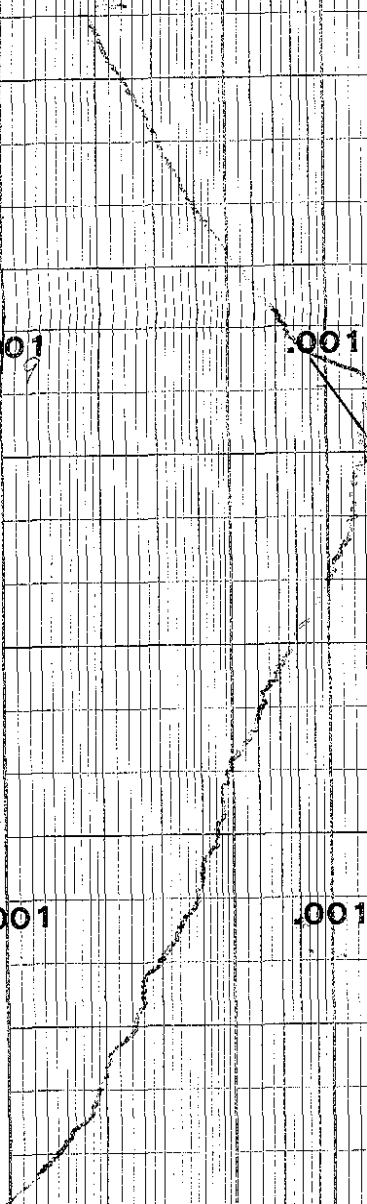 01
.001
001
.001